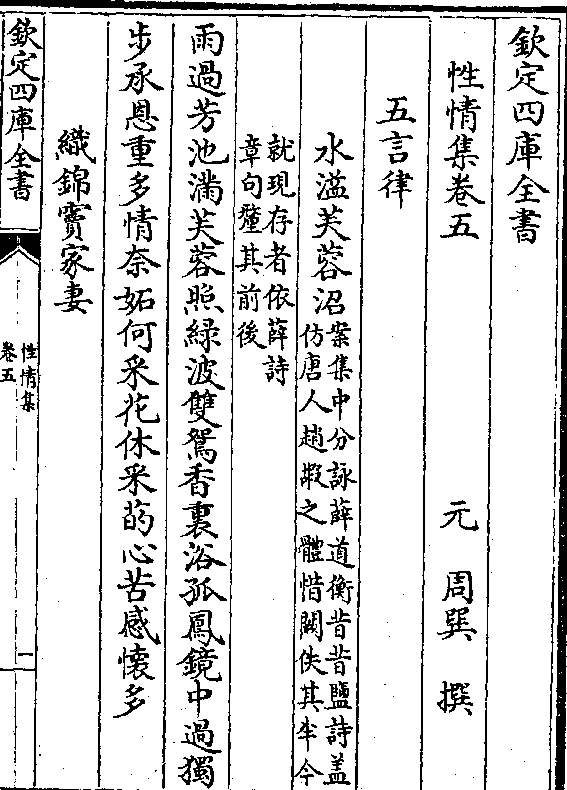 欽定四庫全書
性情集卷五　元　周巽　撰
五言律
水溢芙蓉沼
案集中分詠薛道衡昔昔鹽詩蓋
仿唐人趙嘏之體惜闕佚其半今
就現存者依薛詩
章句釐其前後
雨過芳池滿芙蓉照緑波雙鴛香裏浴孤鳳鏡中過獨
步承恩重多情奈妬何采花休采菂心苦感懷多
織錦竇家妻
欽定四庫全書
性情集
卷五
一